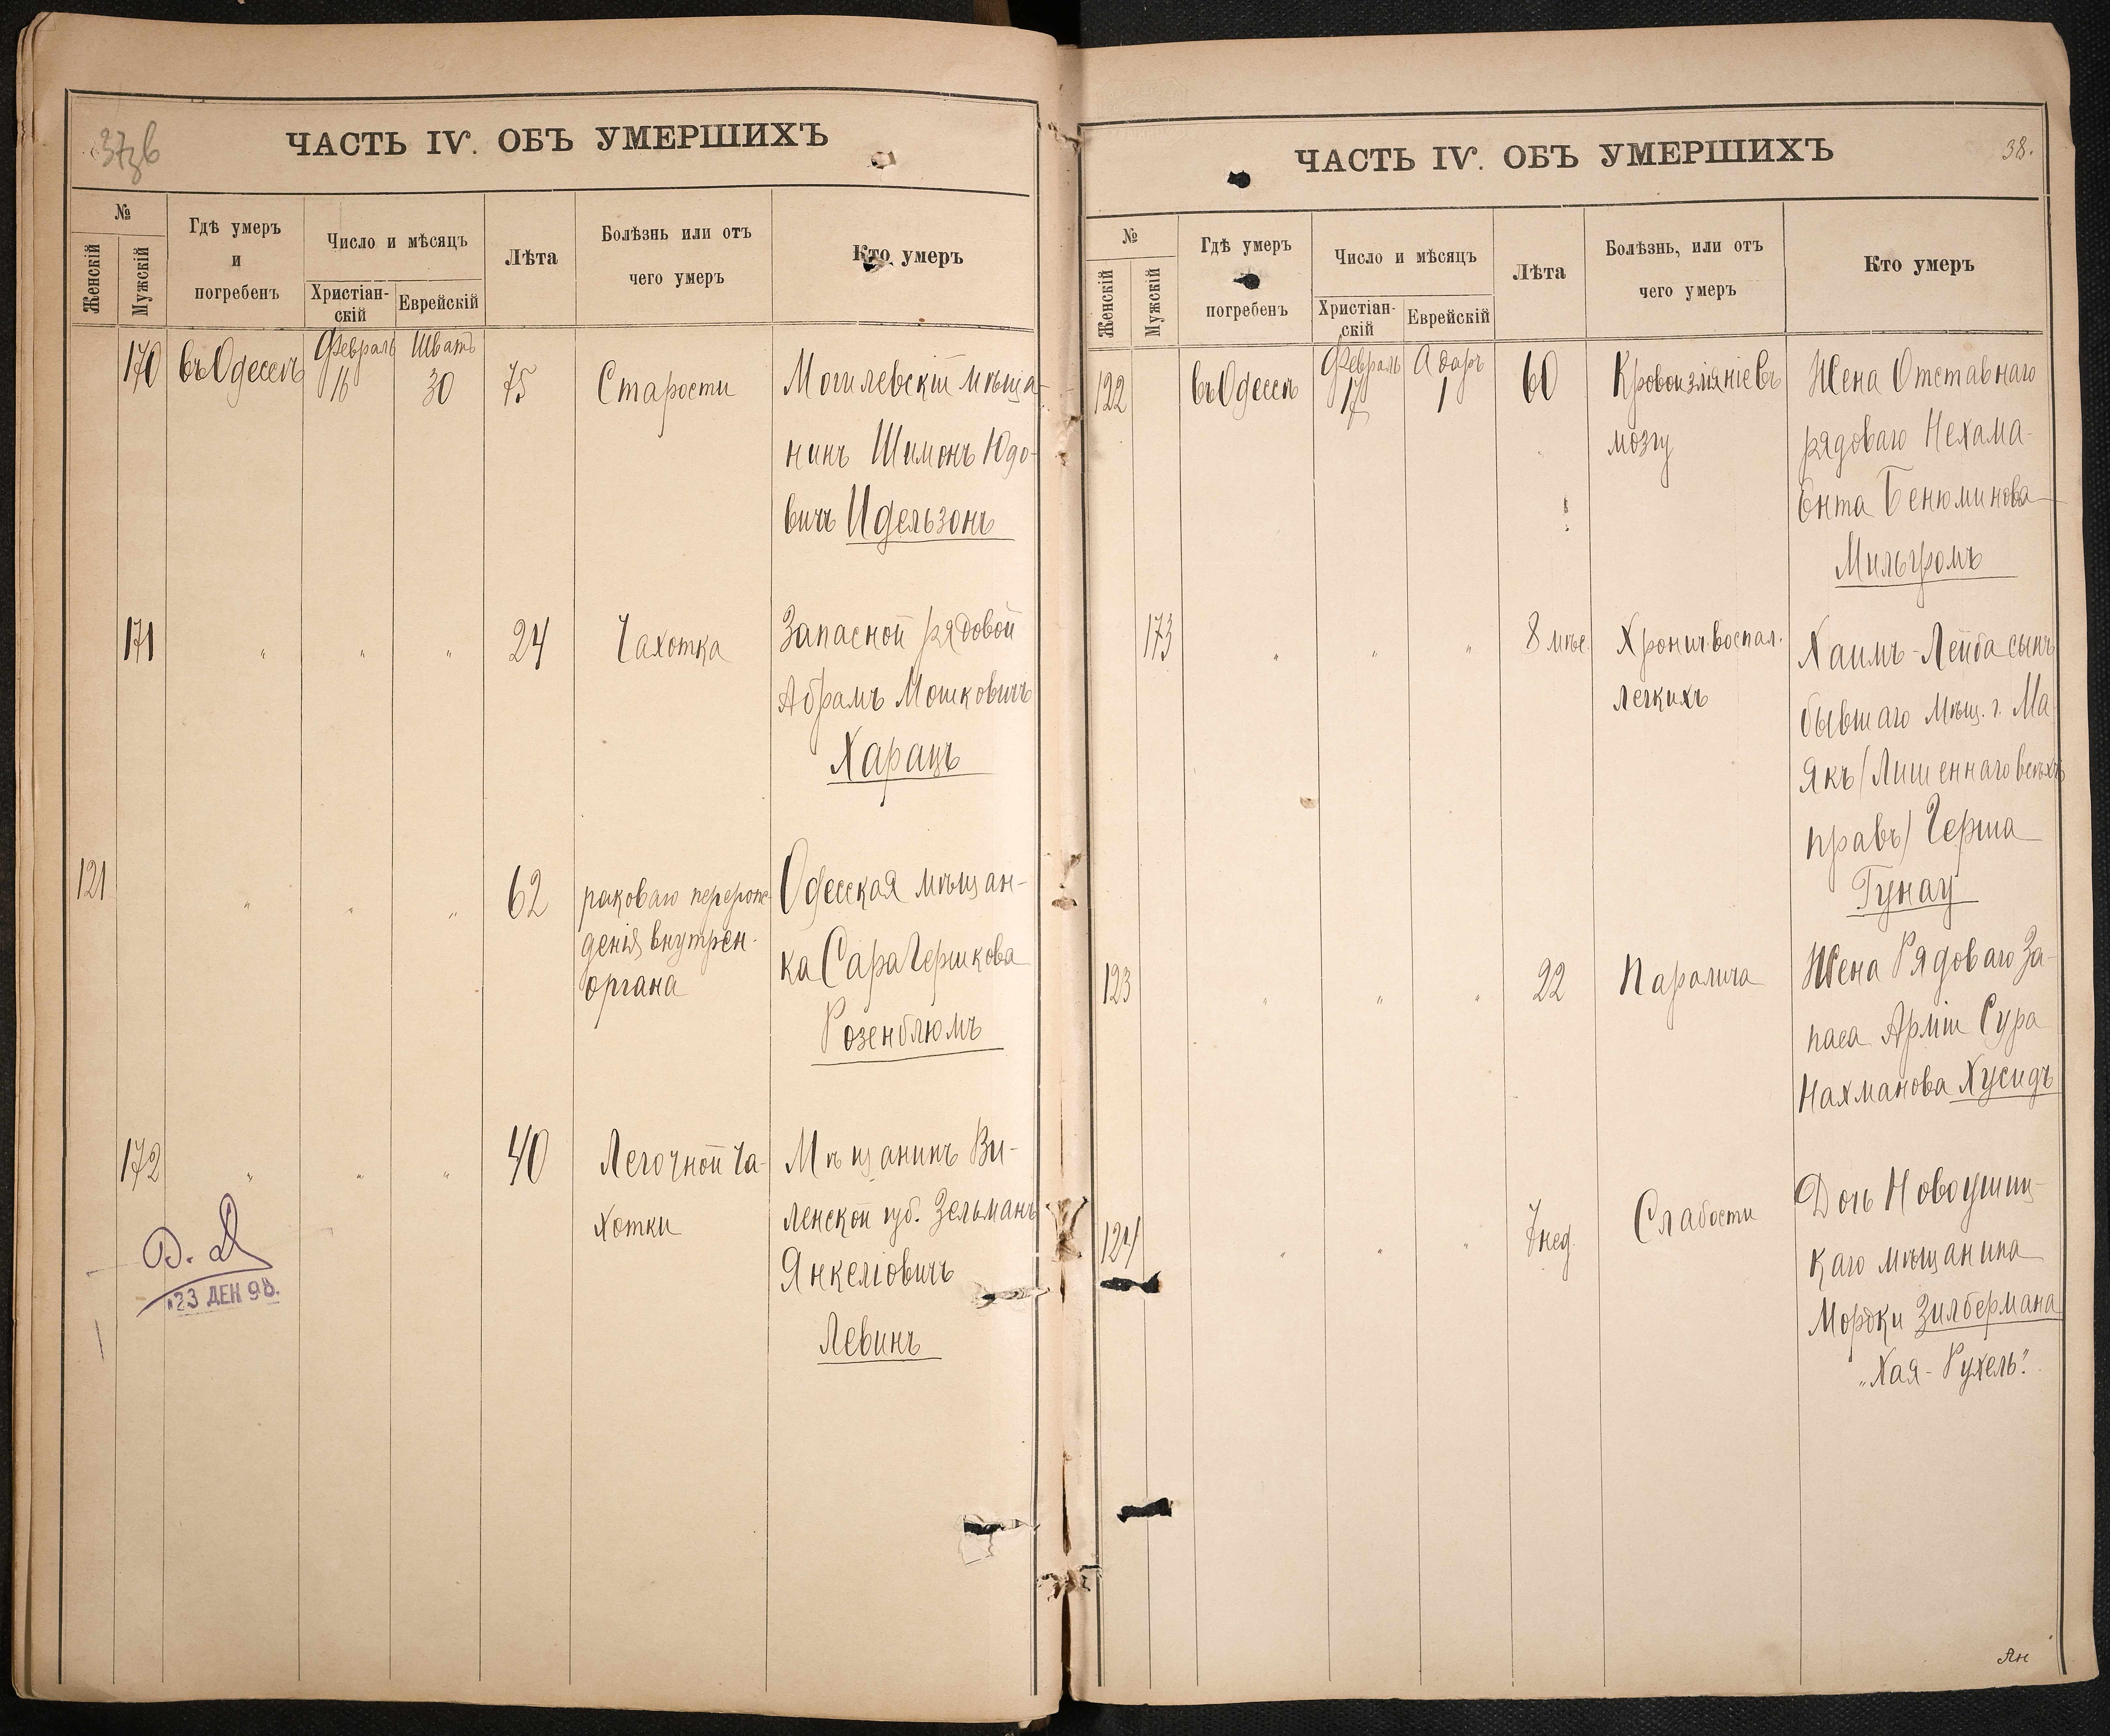 37зв
ЧАСТЬ IV. ОБЪ УМЕРШИХЪ
№
Женскій
Мужскій
Гдѣ умеръ
и
погребенъ
Число и мѣсяцъ
Христіан-
скій
Еврейскій
Лѣта
Болѣзнь или отъ
чего умеръ
Кто умеръ
170 въ Одессѣ Февраль 16 Шватъ 30 75 Старости Могилевскій мѣща-
нинъ Шимонъ Юдо-
вичъ Идельзонъ
171 " " " 24 Чахотка Запасной рядовой
Абрамъ Мошковичъ
Харацъ
121 " " " 62 раковаго перерож- Одесская мѣщан-
денія внутрен. ка Сара Гершкова
органа Розенблюмъ
172 " " " 40 Легочной ча- Мѣщанинъ Ви-
хотки ленской губ. Зельманъ
Янкеліовичъ
Левинъ
23 ДЕК 98.
ЧАСТЬ IV. ОБЪ УМЕРШИХЪ
38.
№
Женскій
Мужскій
Гдѣ умеръ
погребенъ
Число и мѣсяцъ
Христіан-
скій
Еврейскій
Лѣта
Болѣзнь, или отъ
чего умеръ
Кто умеръ
122 въ Одессѣ Февраль 17 Адаръ 1 60 Кровоизліяніе въ Жена Отставнаго
мозгу рядоваго Нехама-
Ента Бенюминова
Мильгромъ
173 " " " 8 мѣс. Хронич. воспал. Хаимъ-Лейба сынъ
легкихъ бывшаго Мѣщ. г. Ма
якъ (Лишеннаго всѣхъ
правъ) Герша
Гунау
123 " " " 22 Паралича Жена Рядоваго За-
паса Арміи Сура
Нахманова Хусидъ
124 " " " 7 нед. Слабости Дочь Новоушиц-
каго мѣщанина
Мордки Зилбермана
"Хая-Рухель".
Ян